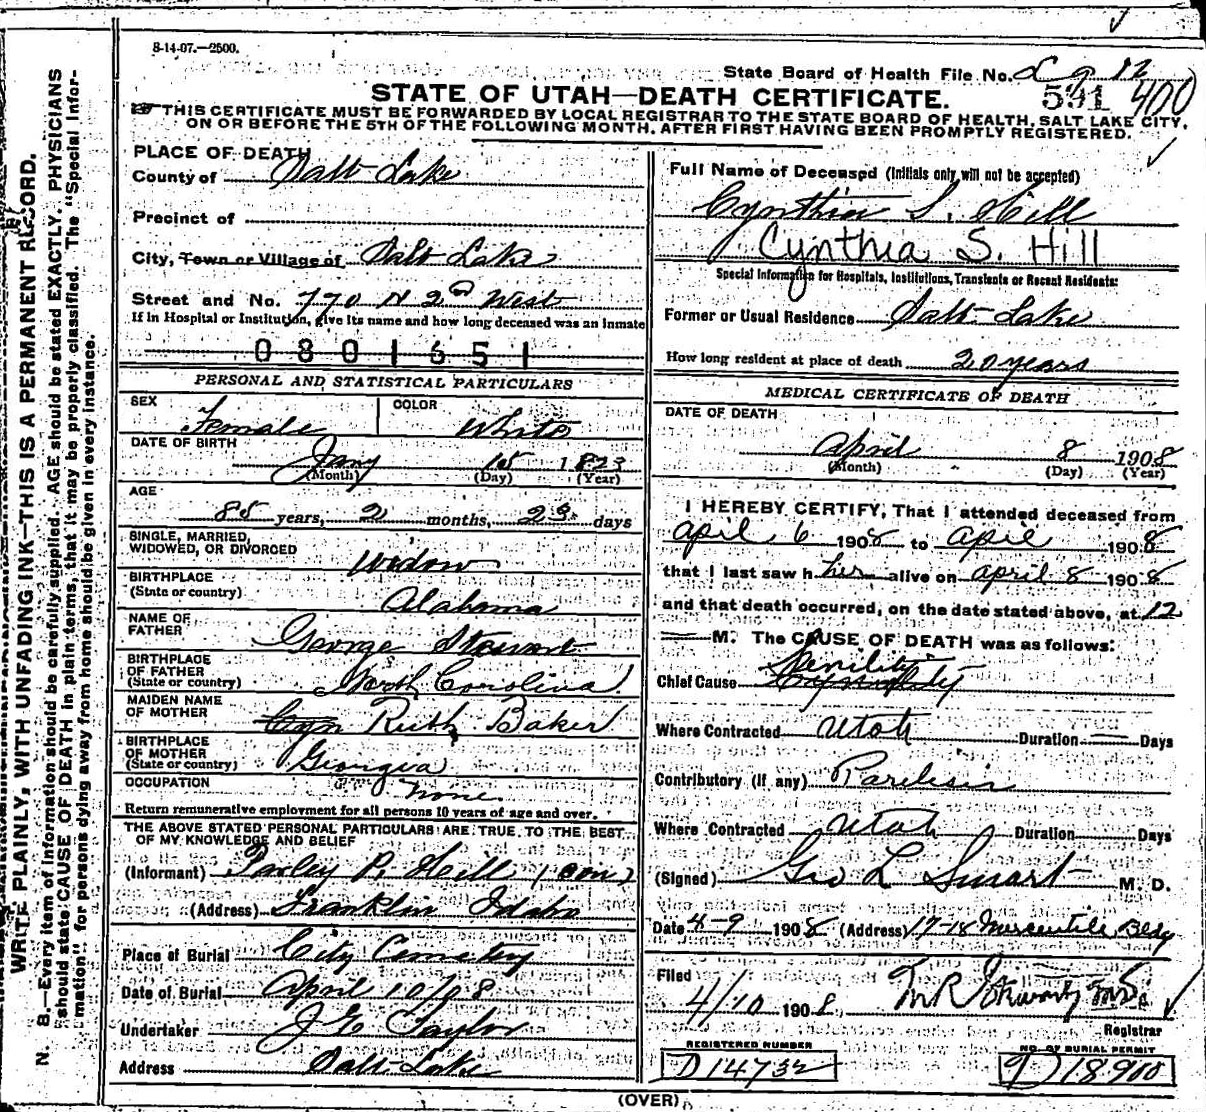 8-14-07.—2500.
State Board of Health File No.
591 400
STATE OF UTAH—DEATH CERTIFICATE.
THIS CERTIFICATE MUST BE FORWARDED BY LOCAL REGISTRAR TO THE STATE BOARD OF HEALTH, SALT LAKE CITY,
ON OR BEFORE THE 5TH OF THE FOLLOWING MONTH, AFTER FIRST HAVING BEEN PROMPTLY REGISTERED.
WRITE PLAINLY, WITH UNFADING INK—THIS IS A PERMANENT RECORD.
N. B.—Every item of information should be carefully supplied. AGE should be stated EXACTLY. PHYSICIANS
should state CAUSE OF DEATH in plain terms, that it may be properly classified. The "Special Infor-
mation" for persons dying away from home should be given in every instance.
PLACE OF DEATH
County of Salt Lake
Precinct of
City, Town or Village of Salt Lake
Street and No. 770 N 2nd West
If in Hospital or Institution, give its name and how long deceased was an inmate
0801651
PERSONAL AND STATISTICAL PARTICULARS
SEX Female COLOR White
DATE OF BIRTH
Jany 15 1823
(Month) (Day) (Year)
AGE
85 years, 2 months, 23 days
SINGLE, MARRIED,
WIDOWED, OR DIVORCED Widow
BIRTHPLACE
(State or country) Alabama
NAME OF
FATHER George Stewart
BIRTHPLACE
OF FATHER
(State or country) North Carolina
MAIDEN NAME
OF MOTHER Cyn Ruth Baker
BIRTHPLACE
OF MOTHER
(State or country) Georgia
OCCUPATION None
Return remunerative employment for all persons 10 years of age and over.
THE ABOVE STATED PERSONAL PARTICULARS ARE TRUE TO THE BEST
OF MY KNOWLEDGE AND BELIEF
(Informant) Parley P. Hill (son)
(Address) Franklin Idaho
Place of Burial City Cemetery
Date of Burial April 10/08
Undertaker J. E. Taylor
Address Salt Lake
Full Name of Deceased (Initials only will not be accepted)
Cynthia S. Hill
Cynthia S. Hill
Special Information for Hospitals, Institutions, Transients or Recent Residents:
Former or Usual Residence Salt Lake
How long resident at place of death 20 years
MEDICAL CERTIFICATE OF DEATH
DATE OF DEATH
April 8 1908
(Month) (Day) (Year)
I HEREBY CERTIFY, That I attended deceased from
April 6 1908 to April 1908
that I last saw her alive on April 8 1908
and that death occurred, on the date stated above, at 12
M. The CAUSE OF DEATH was as follows:
Senility
Chief Cause
Where Contracted Utah Duration — Days
Contributory (if any) Paralisis
Where Contracted Utah Duration Days
(Signed) Geo L Smart M. D.
Date 4-9 1908 (Address) 17-18 Mercantile Bldg
Filed
4/10 1908
Registrar
REGISTERED NUMBER NO. OF BURIAL PERMIT
D14732 D18900
(OVER)